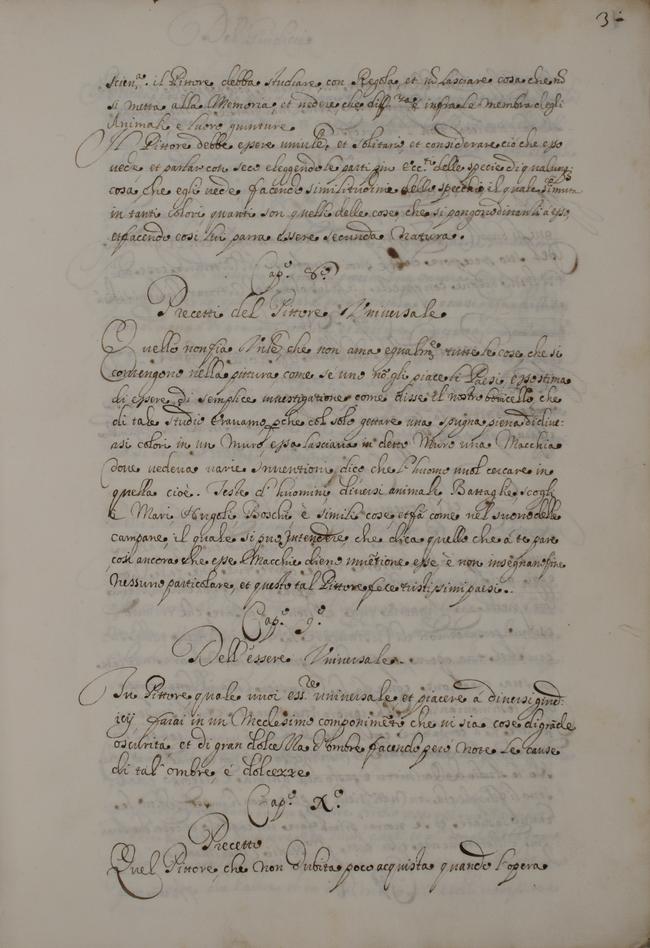 3
scien.ª il Pittore debba studiare con Regola, et nõ lasciare cosa che nõ
si metta alla Memoria, et vedere che diff.za è infra le membra degli
Animali e luoro giunture
Il Pittore debbe essere et solitario et considerare ciò che esso
vede et parlar con seco eleggendo le parti piu ecc.te delle specie di qualunq;
cosa che egli vede facendo similitudine dello specchio il quale si muta
in tanti colori quanti son quelli delle cose che si pongono dinanzi a esso
et facendo cosi lui parra essere seconda Natura.
Cap.º 8.º
Precetti del Pittore Universale
Quello non sia che non ama equalm.e tutte le cose che si
contengono nella pittura come se uno nõ gli piace li Paesi, esso stima
di essere di semplice investigatione come disse il nostro botticello, che
di tale studio Eravamo, pche col solo gettare una spugna piena di diver-
asi colori in un Muro, essa lasciava in detto Muro una Macchia
dove vedeva varie Inventioni, dico che l'huomo vuol cercare in
quella cioè. Teste d'huomini diversi animale, Battaglie, scogli
è Mari, Nugoli Boschi è simile cose, et fa come nel suono delle
campane, il quale si puo Intendere che dica quello che a te pare
cosi ancora che esse Macchie dieno invẽtione esse è non insegnano fine
nessuno particolare, et questo tal Pittore fece tristissimi paesi.
Cap.º 9.º
Dell'essere Universale.
Tu Pittore quale vuoi ess.re universale et piacere à diversi giud-
icij farai in un Medesimo componimẽto che vi sia cose di grãde
oscurita, et di gran dolcezza d'ombre facendo pero note le cause
di tal' ombre, é dolcezze
Cap.º X.º
Precetto
Quel Pittore, che non dubita poco acquista quando l'opera